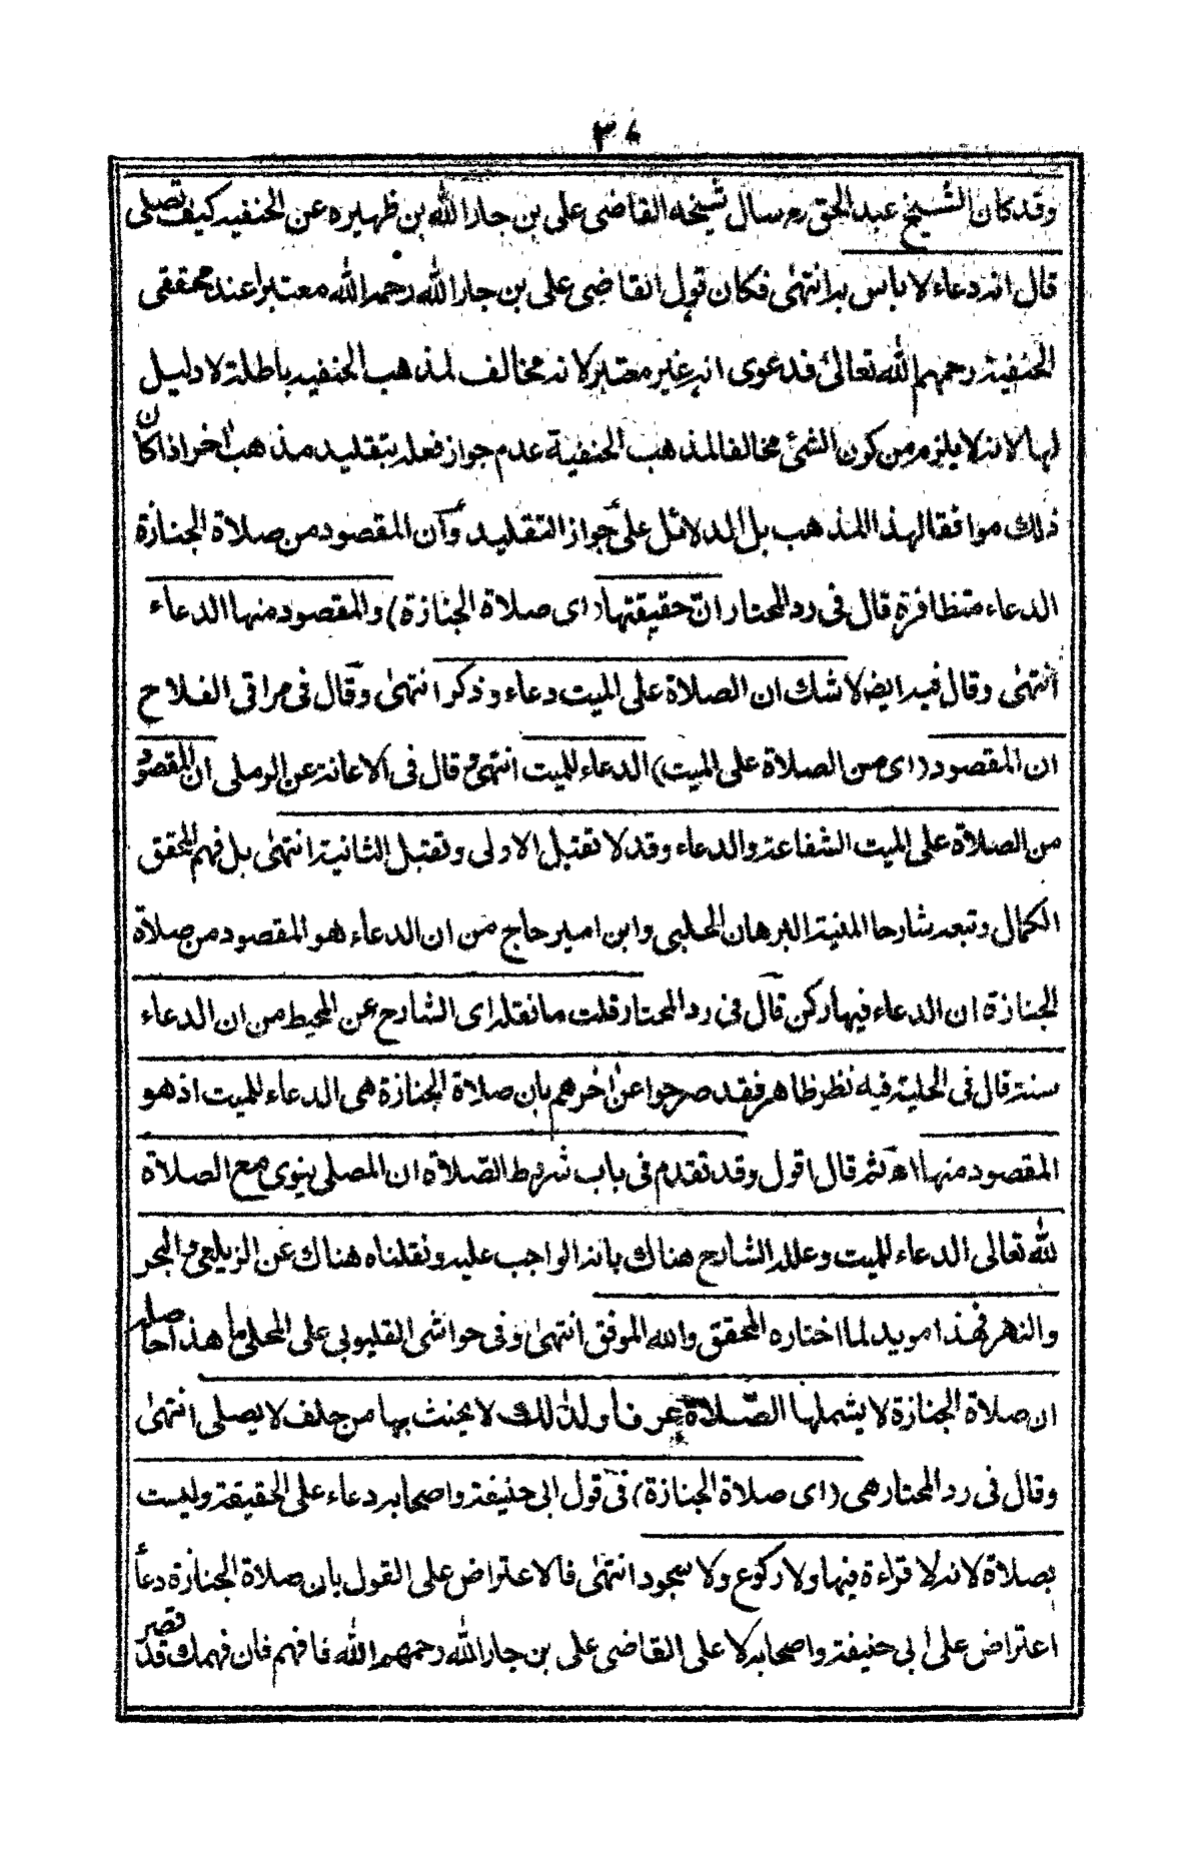 ٣٨
وقد كان الشيخ عبد الحق رح سال شيخه القاضى على بن جار الله بن ظهيره عن الحنفيه كيف تصلى
قال انه دعاء لا باس به انتهى فكان قول القاضى على بن جار الله رحمه الله معتبرا عند محققى
الحنفية رحمهم الله تعالى فدعوى انه غير معتبر لانه مخالف لمذهب الحنفيه باطلة لا دليل
لها لانه لا يلزم من كون الشئ مخالفا لمذهب الحنفية عدم جواز فعله بتقليد مذهب اخر اذا كان
ذلك موافقا لهذا المذهب بل الدلائل على جواز التقليد وان المقصود من صلاة الجنازة
الدعاء متظافرة قال فى رد المحتار ان حقيقتها (اى صلاة الجنازة) والمقصود منها الدعاء
انتهى وقال فيه ايضا لا شك ان الصلاة على الميت دعاء وذكر انتهى وقال فى مراقى الفلاح
ان المقصود (اى من الصلاة على الميت) الدعاء للميت انتهى وقال فى الاعانة عن الرملى ان المقصود
من الصلاة على الميت الشفاعة والدعاء وقد لا تقبل الاولى وتقبل الثانية انتهى بل فهم المحقق
الكمال وتبعه شارحا المنية البرهان الحلبى وابن امير حاج من ان الدعاء هو المقصود من صلاة
الجنازة ان الدعاء فيها ركن قال فى رد المحتار قلت ما نقله اى الشارح عن المحيط من ان الدعاء
سنة قال فى الحلية فيه نظر ظاهر فقد صرحوا عن اخرهم بان صلاة الجنازة هى الدعاء للميت اذ هو
المقصود منها اه ثم قال اقول وقد تقدم فى باب شروط الصلاة ان المصلى ينوى مع الصلاة
لله تعالى الدعاء للميت وعلله الشارح هناك بانه الواجب عليه ونقلناه هناك عن الزيلعى والبحر
والنهر فهذا مويد لما اختاره المحقق والله الموفق انتهى وفى حواشى القليوبى على المحلى ما هذا حاصله
ان صلاة الجنازة لا يشملها الصلاة عرفا ولذلك لا يحنث بها من حلف لا يصلى انتهى
وقال فى رد المحتار هى (اى صلاة الجنازة) فى قول ابى حنيفة واصحابه دعاء على الحقيقة وليست
بصلاة لانه لا قراءة فيها ولا ركوع ولا سجود انتهى فالاعتراض على القول بان صلاة الجنازة دعأ
اعتراض على ابى حنيفة واصحابه لا على القاضى على بن جار الله رحمهم الله فافهم فان فهمك قد قصر